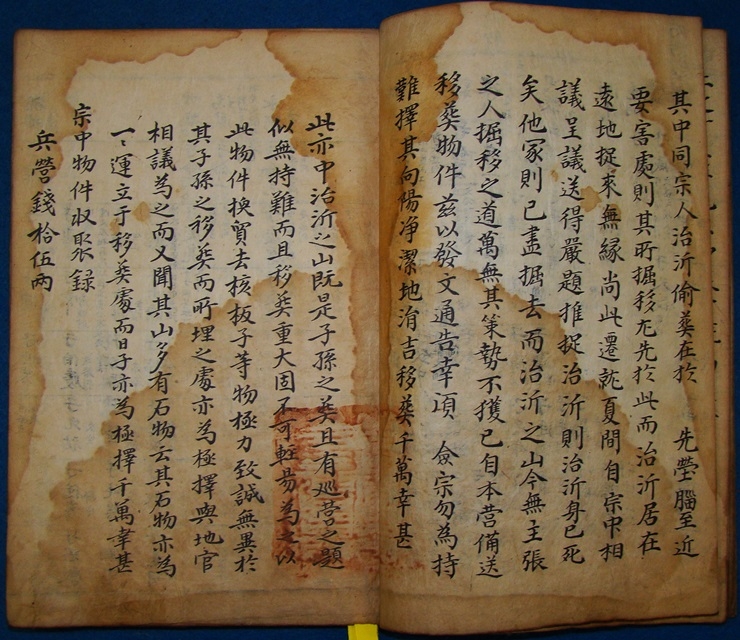 其中同宗人治沂偷葬在於 先塋腦至近
要害處則其所掘移尤先於此而治沂居在
遠地捉來無緣尚此遷就夏間自宗中相
議呈議送得嚴題推捉治沂則治沂身已死
矣他冢則已盡掘去而治沂之山今無主張
之人掘移之道萬無其策勢不獲已自本营備送
移葬物件玆以發文通告幸須 僉宗勿為持
難擇其向陽净潔地涓吉移葬千萬幸甚
此亦中治沂之山旣是子孫之葬且有巡营之題
似無持難而且移葬重大固不可軽易為之以
此物件換貿去核板子等物極力致誠無異於
其子孫之移葬而所埋之處亦為極擇與地官
相議為之而又聞其山多有石物云其石物亦為
一〻運立于移葬處而日子亦為極擇千萬幸甚
宗中物件収聚録
兵營錢拾伍両